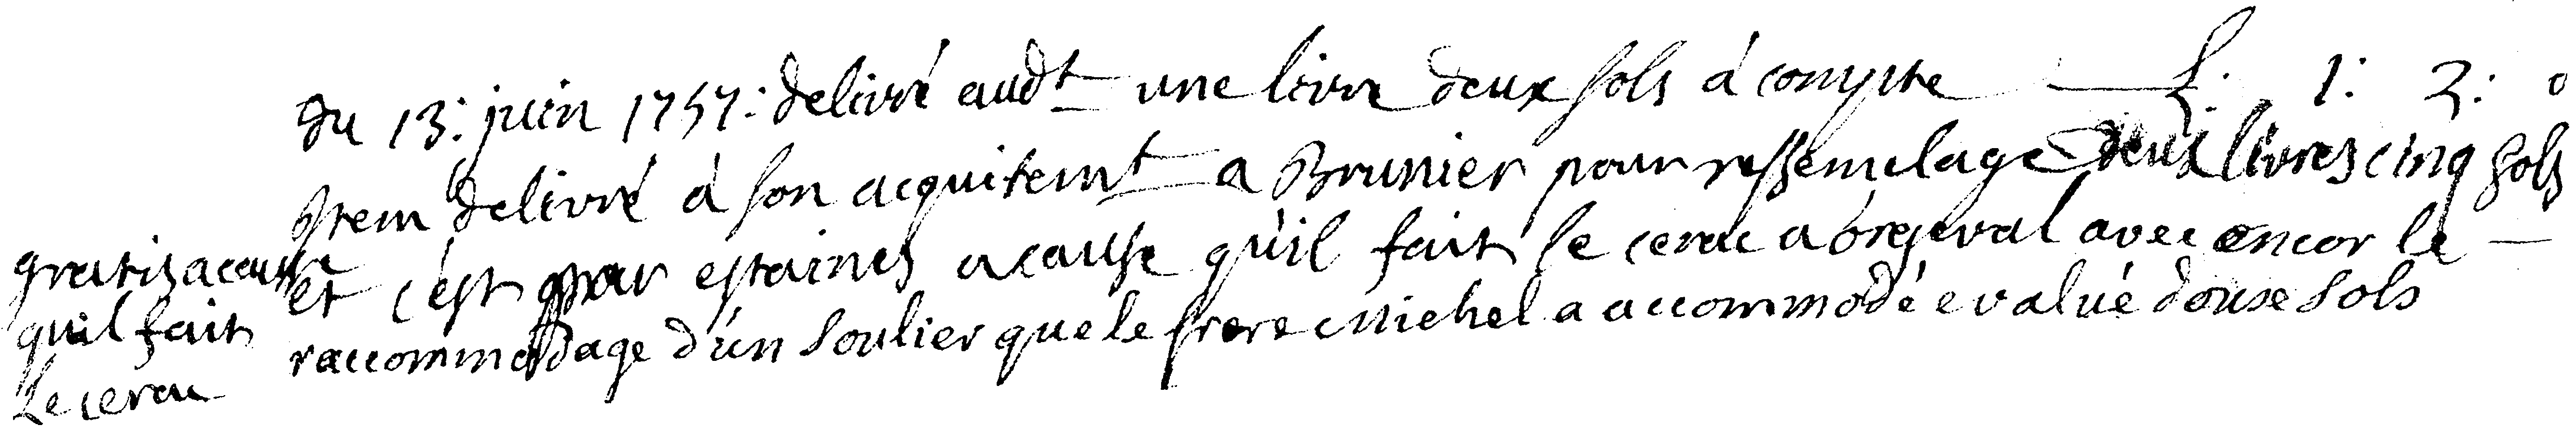 du 13: juin 1757: delivré audt une livre deux sols à compte L: 1: 2: 0
Item delivré à son acquitemt a Brunier pour ressemelage deux livres cinq sols
et c'est pour estaines acause qu'il fait le cerac a orgeval avec encor le
raccommodage d'un soulier que le frere Michel a accommodé evalué douse sols
gratis acause
quil fait
Le cerac